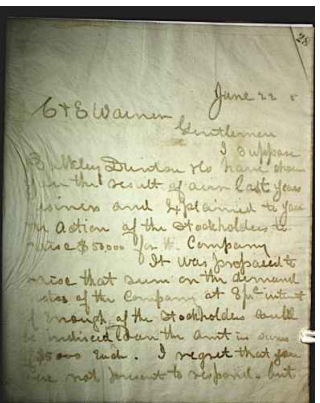 28
June 22
C & E Warren
Gentlemen
I suppose
have shown
you the result of our last years
business and explained to you
action of the Stockholders to
raise $50000 for the Company
It was proposed to
raise that sum on the demand
notes of the Company at 8 pr ct interest
if enough of the Stockholders could
be induced loan the amt in sums
$5000 Each. I regret that you
were not present to respond. but